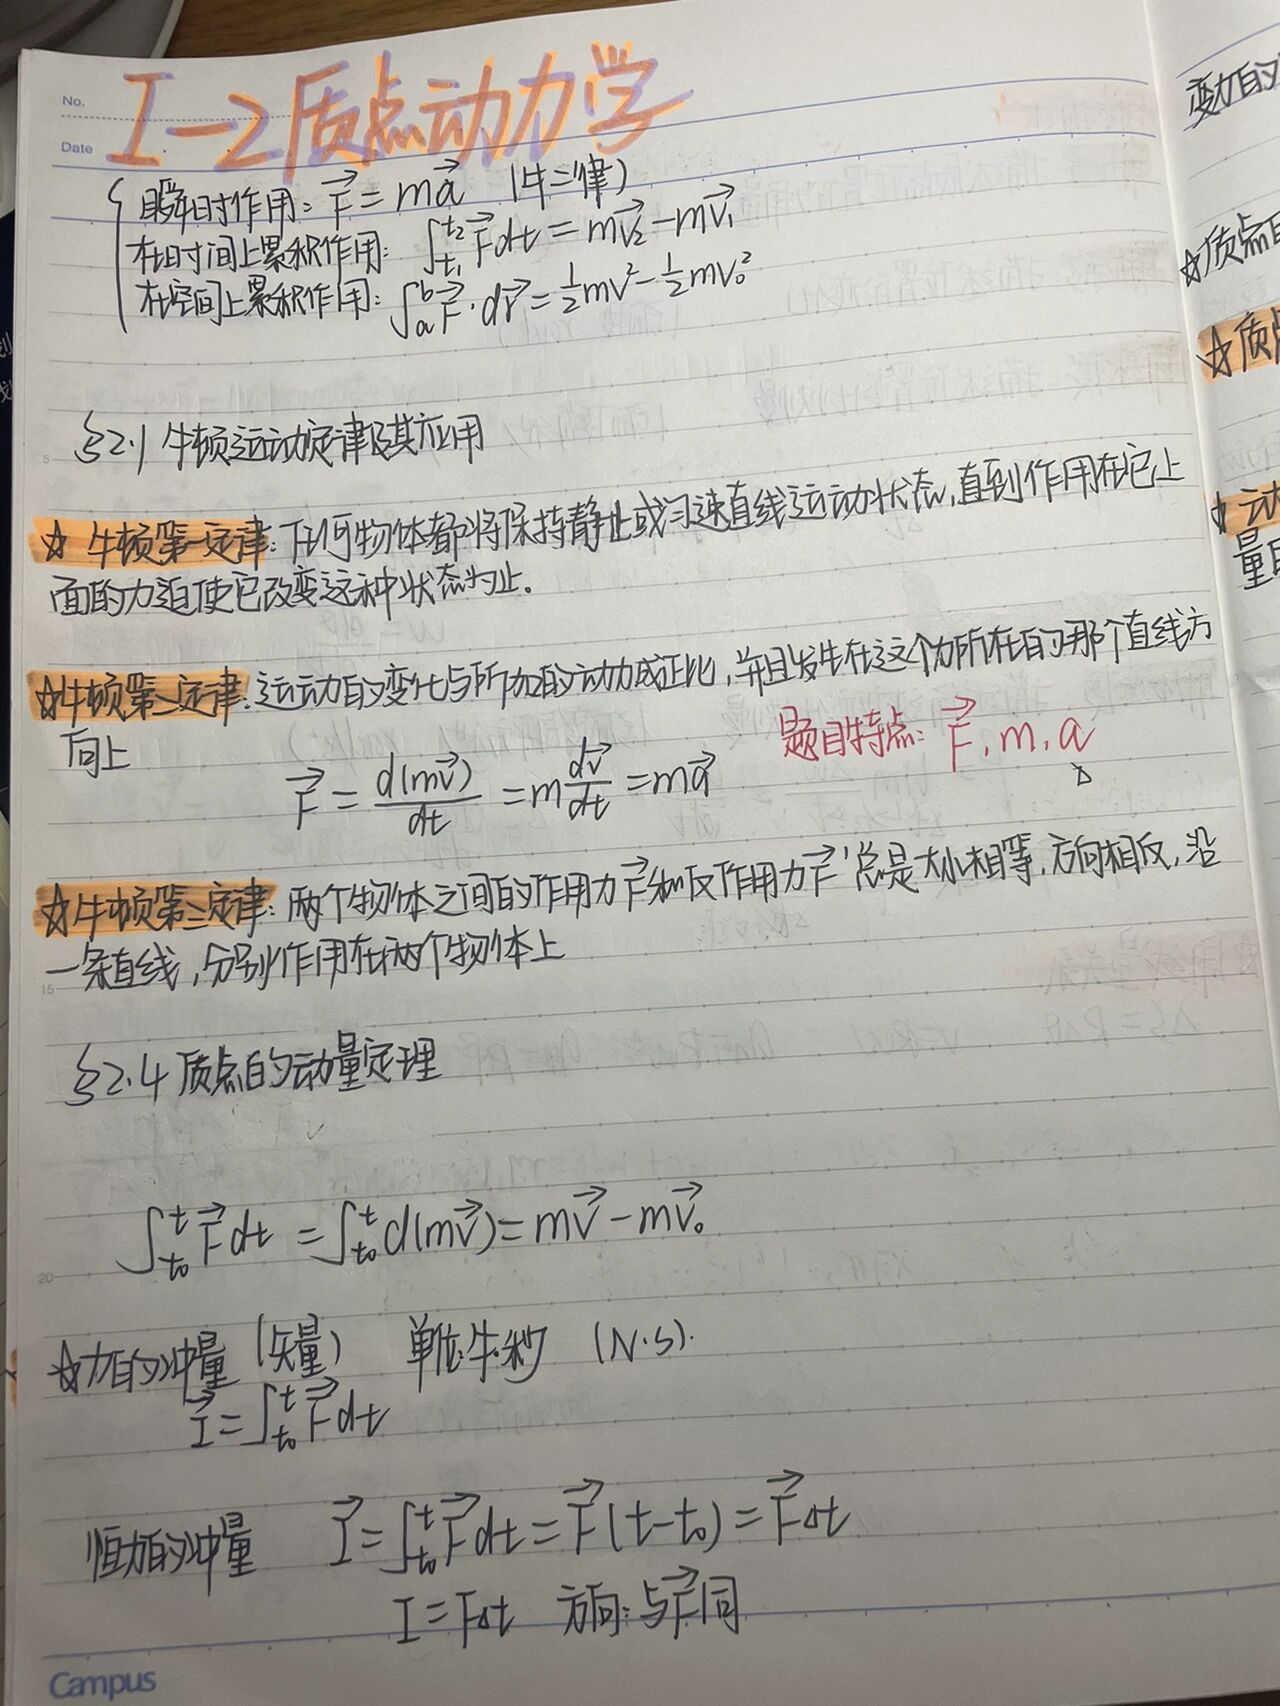 No.
Date
I-2质点动力学
瞬时作用: F⃗ = ma⃗ (牛二律)
在时间上累积作用: ∫_{t₁}^{t₂} F⃗dt = mv⃗₂ - mv⃗₁
在空间上累积作用: ∫_a^b F⃗·dr⃗ = ½mv² - ½mv₀²
§2.1 牛顿运动定律及其应用
5
☆ 牛顿第一定律: 任何物体都将保持静止或匀速直线运动状态,直到作用在它上
面的力迫使它改变这种状态为止.
☆牛顿第二定律: 运动的变化与所加的动力成正比,并且发生在这个力所在的那个直线方
向上
题目特点: F⃗, m, a⃗
△
F⃗ = d(mv⃗)/dt = m dv⃗/dt = ma⃗
☆牛顿第三定律: 两个物体之间的作用力F⃗和反作用力F⃗'总是大小相等,方向相反,沿
一条直线,分别作用在两个物体上
15
§2.4 质点的动量定理
∫_{t₀}^{t} F⃗dt = ∫_{t₀}^{t} d(mv⃗) = mv⃗ - mv⃗₀
20
☆力的冲量 (矢量) 单位:牛·秒 (N·S).
I⃗ = ∫_{t₀}^{t} F⃗dt
恒力的冲量 I⃗ = ∫_{t₀}^{t} F⃗dt = F⃗(t-t₀) = F⃗Δt
I = FΔt 方向:与F⃗同
Campus
变力的
☆质点
☆质
☆动
量